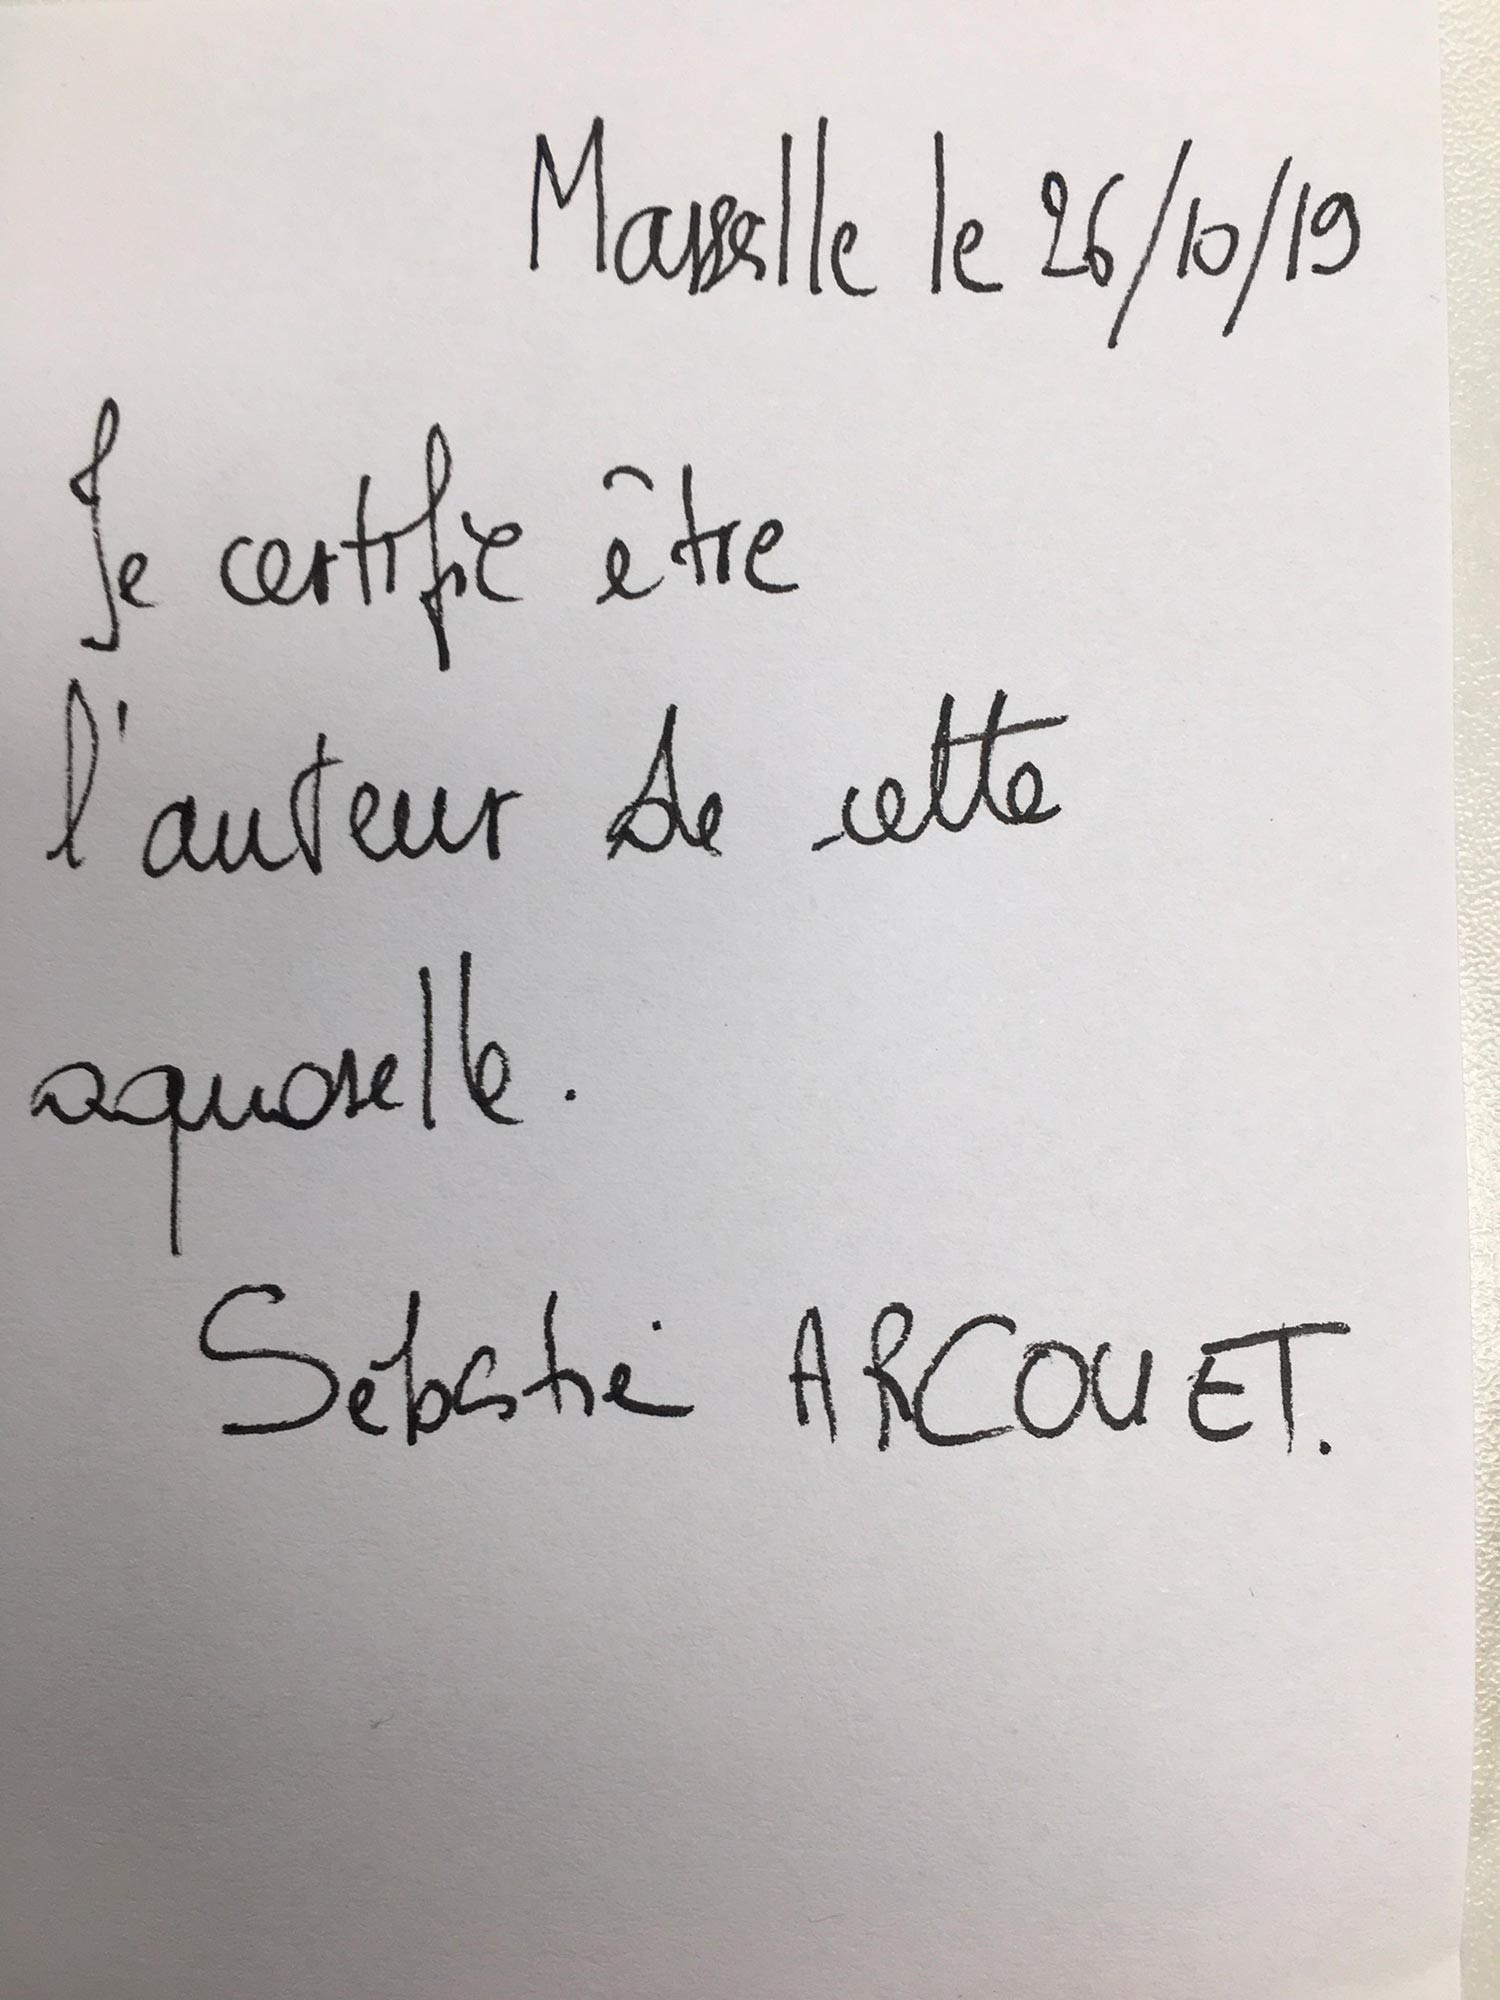 Marseille le 26/10/19
Je certifie être
l'auteur de cette
aquarelle.
Sébastien ARCOUET.